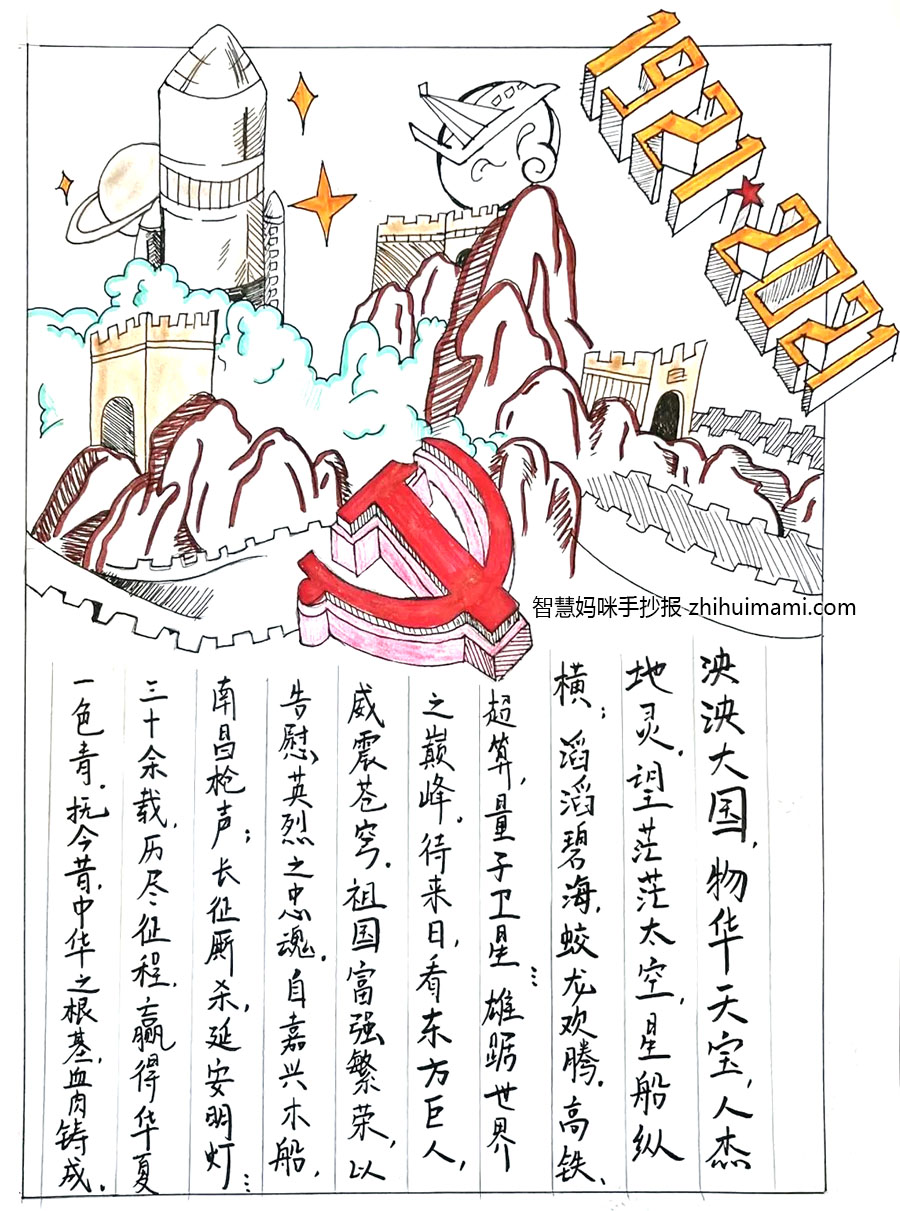 1921★2021
智慧妈咪手抄报 zhihuimami.com
泱泱大国,物华天宝,人杰
地灵。望茫茫太空,星船纵
横;滔滔碧海,蛟龙欢腾。高铁、
超算,量子卫星…雄踞世界
之巅峰。待来日,看东方巨人,
威震苍穹。祖国富强繁荣,以
告慰英烈之忠魂。自嘉兴木船,
南昌枪声;长征厮杀,延安明灯…
三十余载,历尽征程,赢得华夏
一色青。抚今昔,中华之根基,血肉铸成。